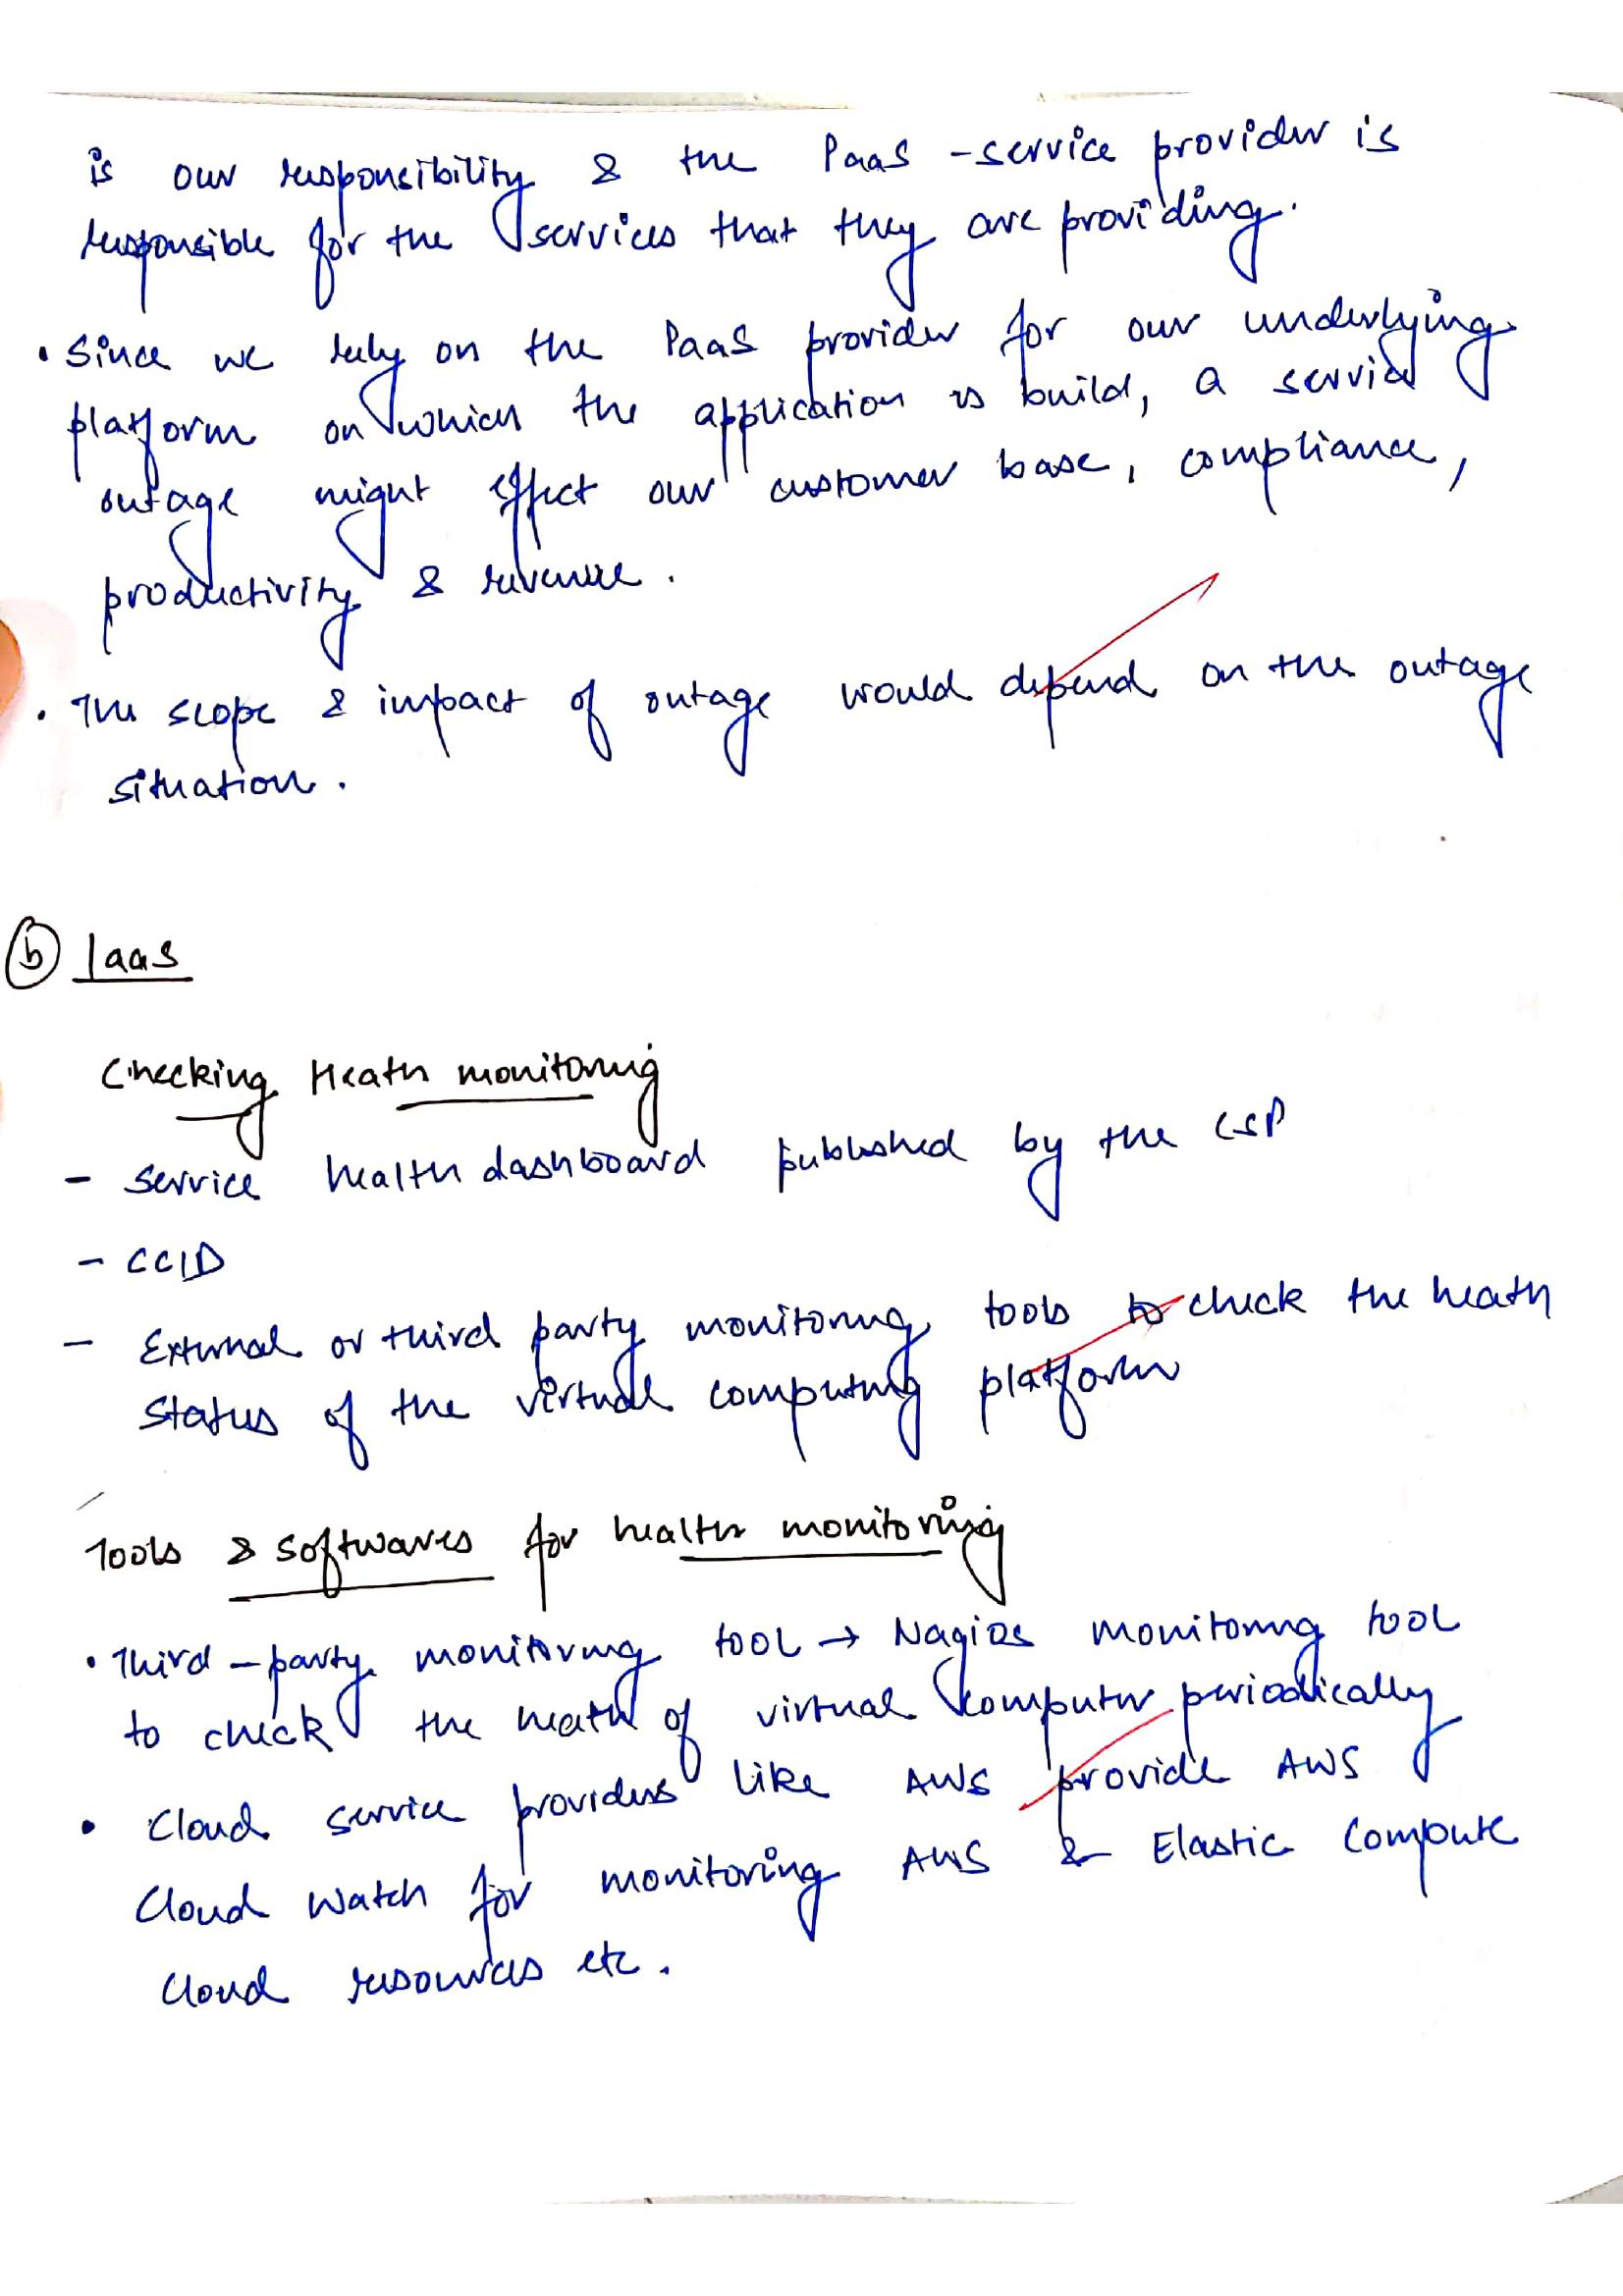 is our responsibility & the PaaS -service provider is
responsible for the services that they are providing.
• Since we rely on the PaaS provider for our underlying
platform on which the application is build, a service
outage might effect our customer base, compliance,
productivity & revenue.
• The scope & impact of outage would depend on the outage
situation.
(b) IaaS
Checking Heath monitoring
- Service health dashboard published by the CSP
- CCID
- External or third party monitoring tools to check the heath
status of the virtual computing platform
Tools & softwares for health monitoring
• Third-party monitoring tool → Nagios monitoring tool
to check the heath of virtual computer periodically
• Cloud service providers like AWS provide AWS
Cloud Watch for monitoring AWS & Elastic Compute
Cloud resources etc.